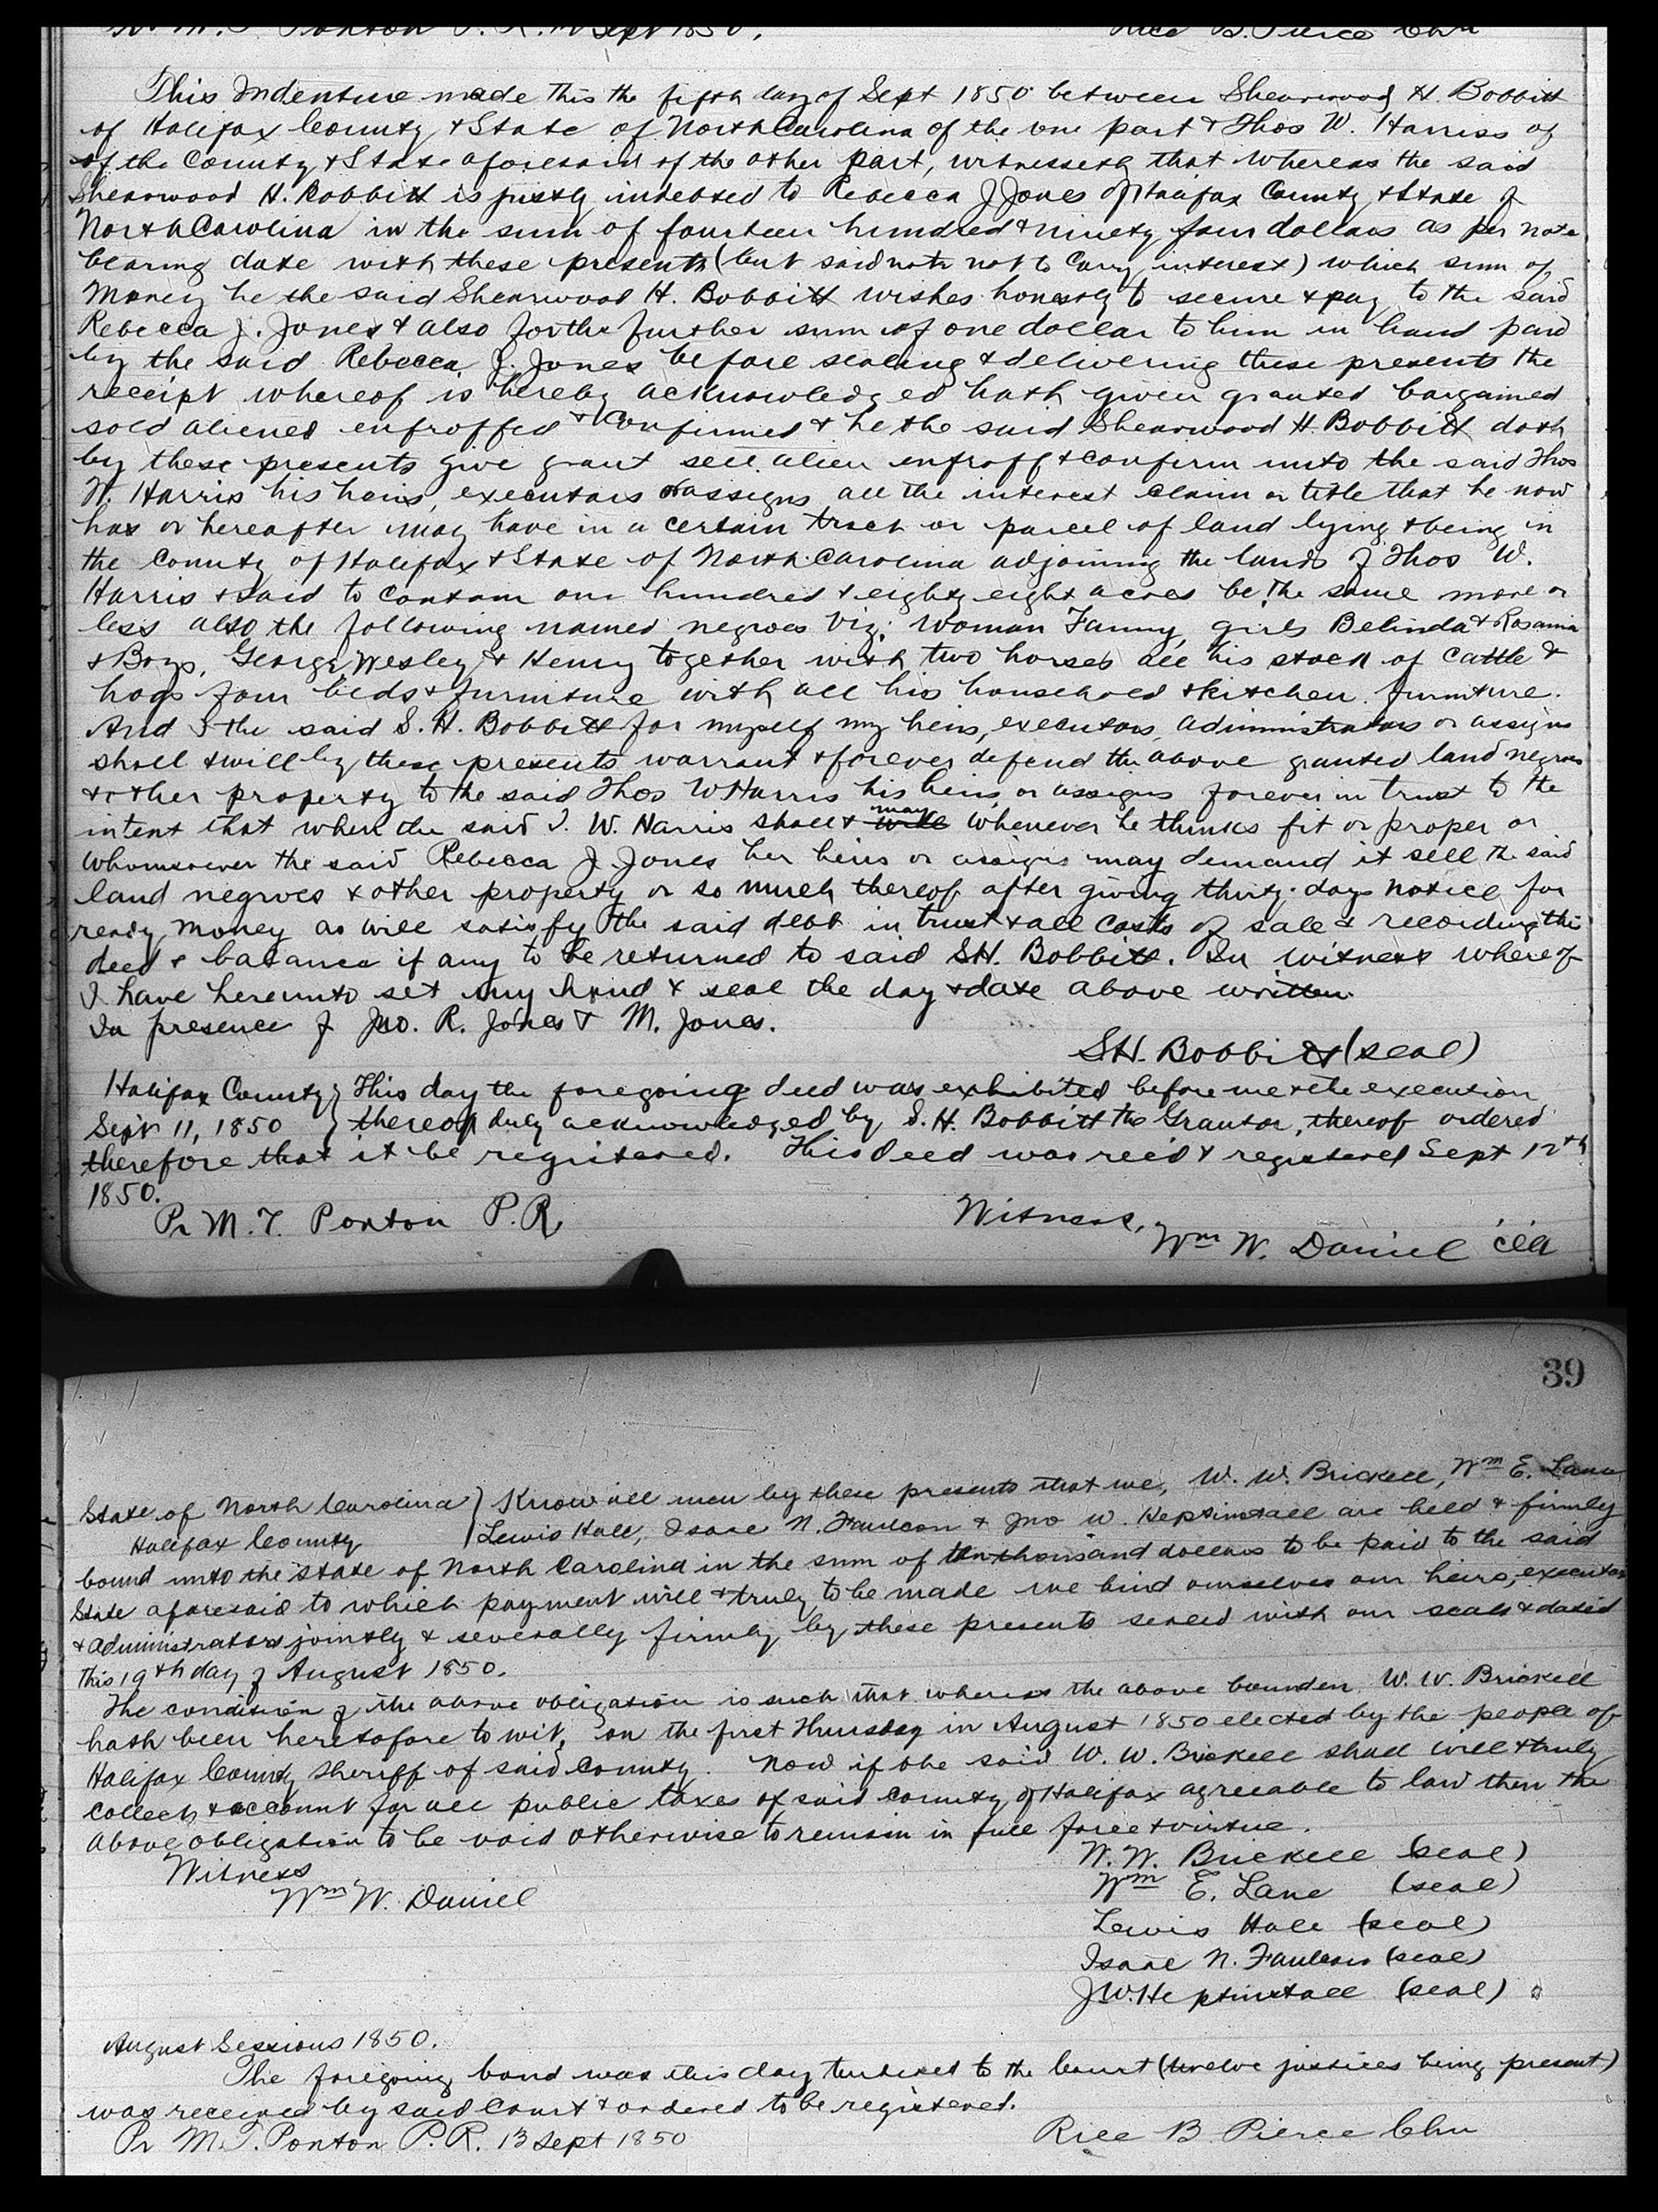 Wm. T. Ponton P. R. 12 Sept 1850. Rice B. Pierce Chm
This Indenture made this the fifth day of Sept 1850 between Shearwood H. Bobbitt
of Halifax County & State of North Carolina of the one part & Thos W. Harriss of
of the County & State aforesaid of the other part, witnesseth that whereas the said
Shearwood H. Bobbitt is justly indebted to Rebecca J Jones of Halifax County & State of
North Carolina in the sum of fourteen hundred & ninety four dollars as per note
bearing date with these presents (but said note not to carry interest) which sum of
Money he the said Shearwood H. Bobbitt wishes honestly to secure & pay to the said
Rebecca J. Jones & also for the further sum of one dollar to him in hand paid
by the said Rebecca J. Jones before sealing & delivering these presents the
receipt whereof is hereby acknowledged hath given granted bargained
sold aliened enfroffed & Confirmed & he the said Shearwood H. Bobbitt doth
by these presents give grant sell alien enfroff & confirm unto the said Thos
W. Harris his heirs, executors or assigns all the interest claim or title that he now
has or hereafter may have in a certain tract or parcel of land lying & being in
the County of Halifax & State of North Carolina adjoining the lands of Thos W.
Harris & said to contain one hundred & eighty eight acres be the same more or
less also the following named negroes viz; Woman Fanny, girls Belinda & Rosanna
& Boys, George, Wesley & Henry together with two horses all his stock of cattle &
hogs four beds & furniture with all his household & kitchen furniture.
And I the said S. H. Bobbitt for myself my heirs, executors, administrators or assigns
shall & will by these presents warrant & forever defend the above granted land negroes
& other property to the said Thos W Harris his heirs or assigns forever in trust to the
intent that when the said T. W. Harris shall & will may whenever he thinks fit or proper or
whomsoever the said Rebecca J. Jones her heirs or assigns may demand it sell the said
land negroes & other property or so much thereof after giving thirty days notice for
ready money as will satisfy the said debt in trust & all costs of sale & recording this
deed & balance if any to be returned to said S.H. Bobbitt. In witness whereof
I have hereunto set my hand & seal the day & date above written.
In presence of Jno. R. Jones & M. Jones.
S.H. Bobbitt (seal)
Halifax County } This day the foregoing deed was exhibited before me & the execution
Sept 11, 1850 } thereof duly acknowledged by S. H. Bobbitt the Grantor, thereof ordered
therefore that it be registered. This deed was rec'd & registered Sept 12th
1850.
Pr M. T. Ponton P. R. Witness,
Wm W. Daniel clk
39
State of North Carolina } Know all men by these presents that we, W. W. Brickell, Wm E. Lane
Halifax County } Lewis Hall, Isaac N. Faulcon & Jno W. Heptinstall are held & firmly
bound unto the State of North Carolina in the sum of ten thousand dollars to be paid to the said
State aforesaid to which payment will & truly to be made we bind ourselves our heirs, executors
& administrators jointly & severally firmly by these presents sealed with our seals & dated
this 19th day of August 1850.
The condition of the above obligation is such that whereas the above bounden W. W. Brickell
hath been heretofore to wit, on the first Thursday in August 1850 elected by the people of
Halifax County Sheriff of said County. Now if the said W. W. Brickell shall will & truly
collect & account for all public taxes of said county of Halifax agreeable to law then the
above obligation to be void otherwise to remain in full force & virtue.
Witness W. W. Brickell (seal)
Wm W. Daniel Wm E. Lane (seal)
Lewis Hall (seal)
Isaac N. Faulcon (seal)
J.W. Heptinstall (seal)
August Sessions 1850.
The foregoing bond was this day tendered to the Court (twelve justices being present)
was received by said Court & ordered to be registered.
Pr M. T. Ponton P. R. 13 Sept 1850 Rice B. Pierce Chm